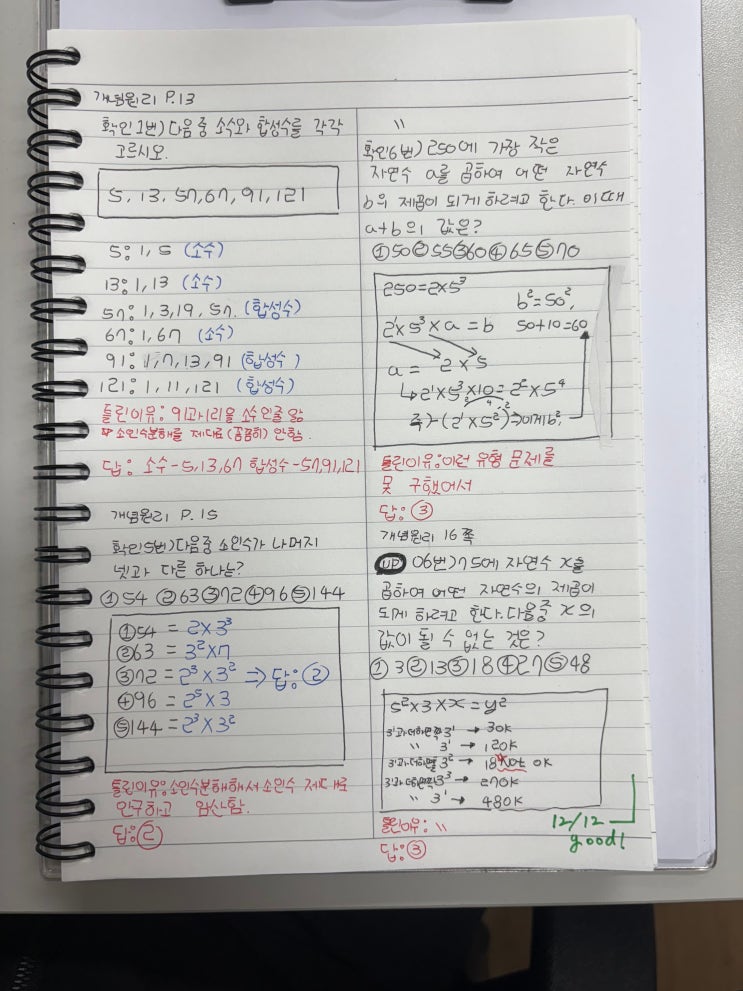 개념원리 P.13
확인 1번) 다음 중 소수와 합성수를 각각
고르시오.
5, 13, 57, 67, 91, 121
5: 1, 5 (소수)
13: 1, 13 (소수)
57: 1, 3, 19, 57. (합성수)
67: 1, 67 (소수)
91: 1, 7, 13, 91 (합성수)
121: 1, 11, 121 (합성수)
틀린이유: 91과 소인수분해를 제대로 (꼼꼼히) 안함.
답: 소수 - 5, 13, 67 합성수 - 57, 91, 121
개념원리 P.15
확인 5번) 다음 중 소인수가 나머지
넷과 다른 하나는?
① 54 ② 63 ③ 72 ④ 96 ⑤ 144
① 54 = 2×3³
② 63 = 3²×7
③ 72 = 2³×3² ⇒ 답: ②
④ 96 = 2⁵×3
⑤ 144 = 2³×3²
틀린이유: 소인수분해해서 소인수 제대로
안구하고 암산함.
답: ②
〃
확인 6번) 250에 가장 작은
자연수 a를 곱하여 어떤 자연수
b의 제곱이 되게 하려고 한다. 이때
a+b의 값은?
① 50 ② 55 ③ 60 ④ 65 ⑤ 70
250 = 2×5³
b² = 50²,
2¹×5³×a = b 50+10=60
a = 2×5
↳ 2¹×5³×10 = 2²×5⁴
틀린이유: 이런 유형 문제를
못 구했어서
답: ③
개념원리 16쪽
UP 06번) 75에 자연수 x를
곱하여 어떤 자연수의 제곱이
되게 하려고 한다. 다음 중 x의
값이 될 수 없는 것은?
① 3 ② 13 ③ 18 ④ 27 ⑤ 48
5²×3×x = y²
3¹ → 3 OK
〃 3¹ → 12 OK
3² → 18 not OK
3³ → 27 OK
〃 3¹ → 48 OK
틀린이유: 〃
답: ③
12/12
good!